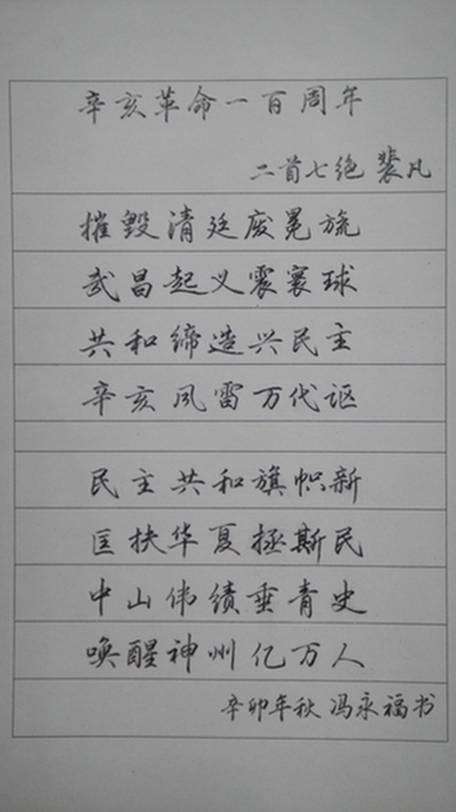 辛亥革命一百周年
二首七绝 裴凡
摧毁清廷废冕旒
武昌起义震寰球
共和缔造兴民主
辛亥风雷万代讴
民主共和旗帜新
匡扶华夏拯斯民
中山伟绩垂青史
唤醒神州亿万人
辛卯年秋 冯永福书